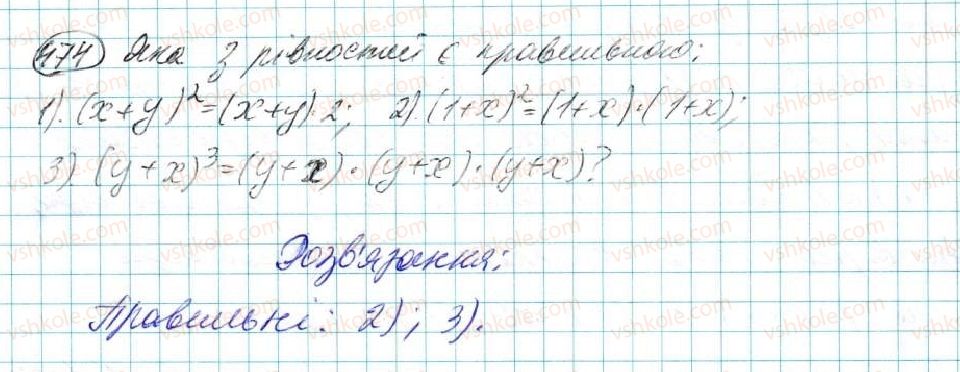 474 Яка з рівностей є правильною:
1). (x+y)²=(x+y)·2; 2). (1+x)²=(1+x)·(1+x);
3). (y+x)³=(y+x)·(y+x)·(y+x)?
Розв'язання:
Правильні: 2); 3).